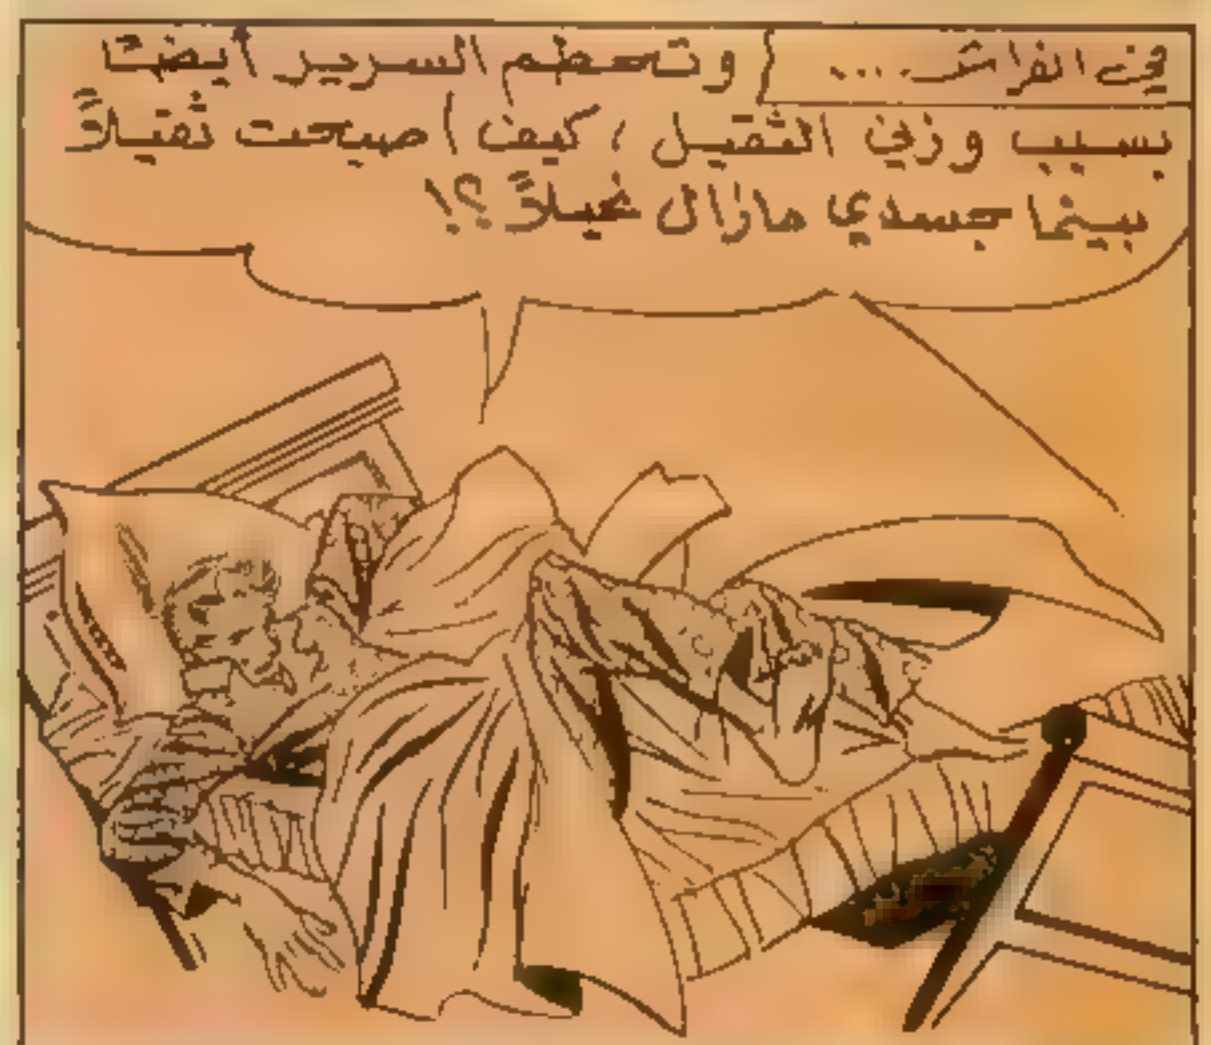 في الفراش...
وتحطم السرير أيضًا
بسبب وزني الثقيل، كيف أصبحت ثقيلاً
بينما جسدي مازال نحيلاً؟!